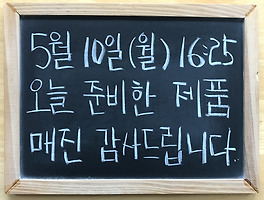 5월 10일(월) 16:25
오늘 준비한 제품
매진 감사드립니다.